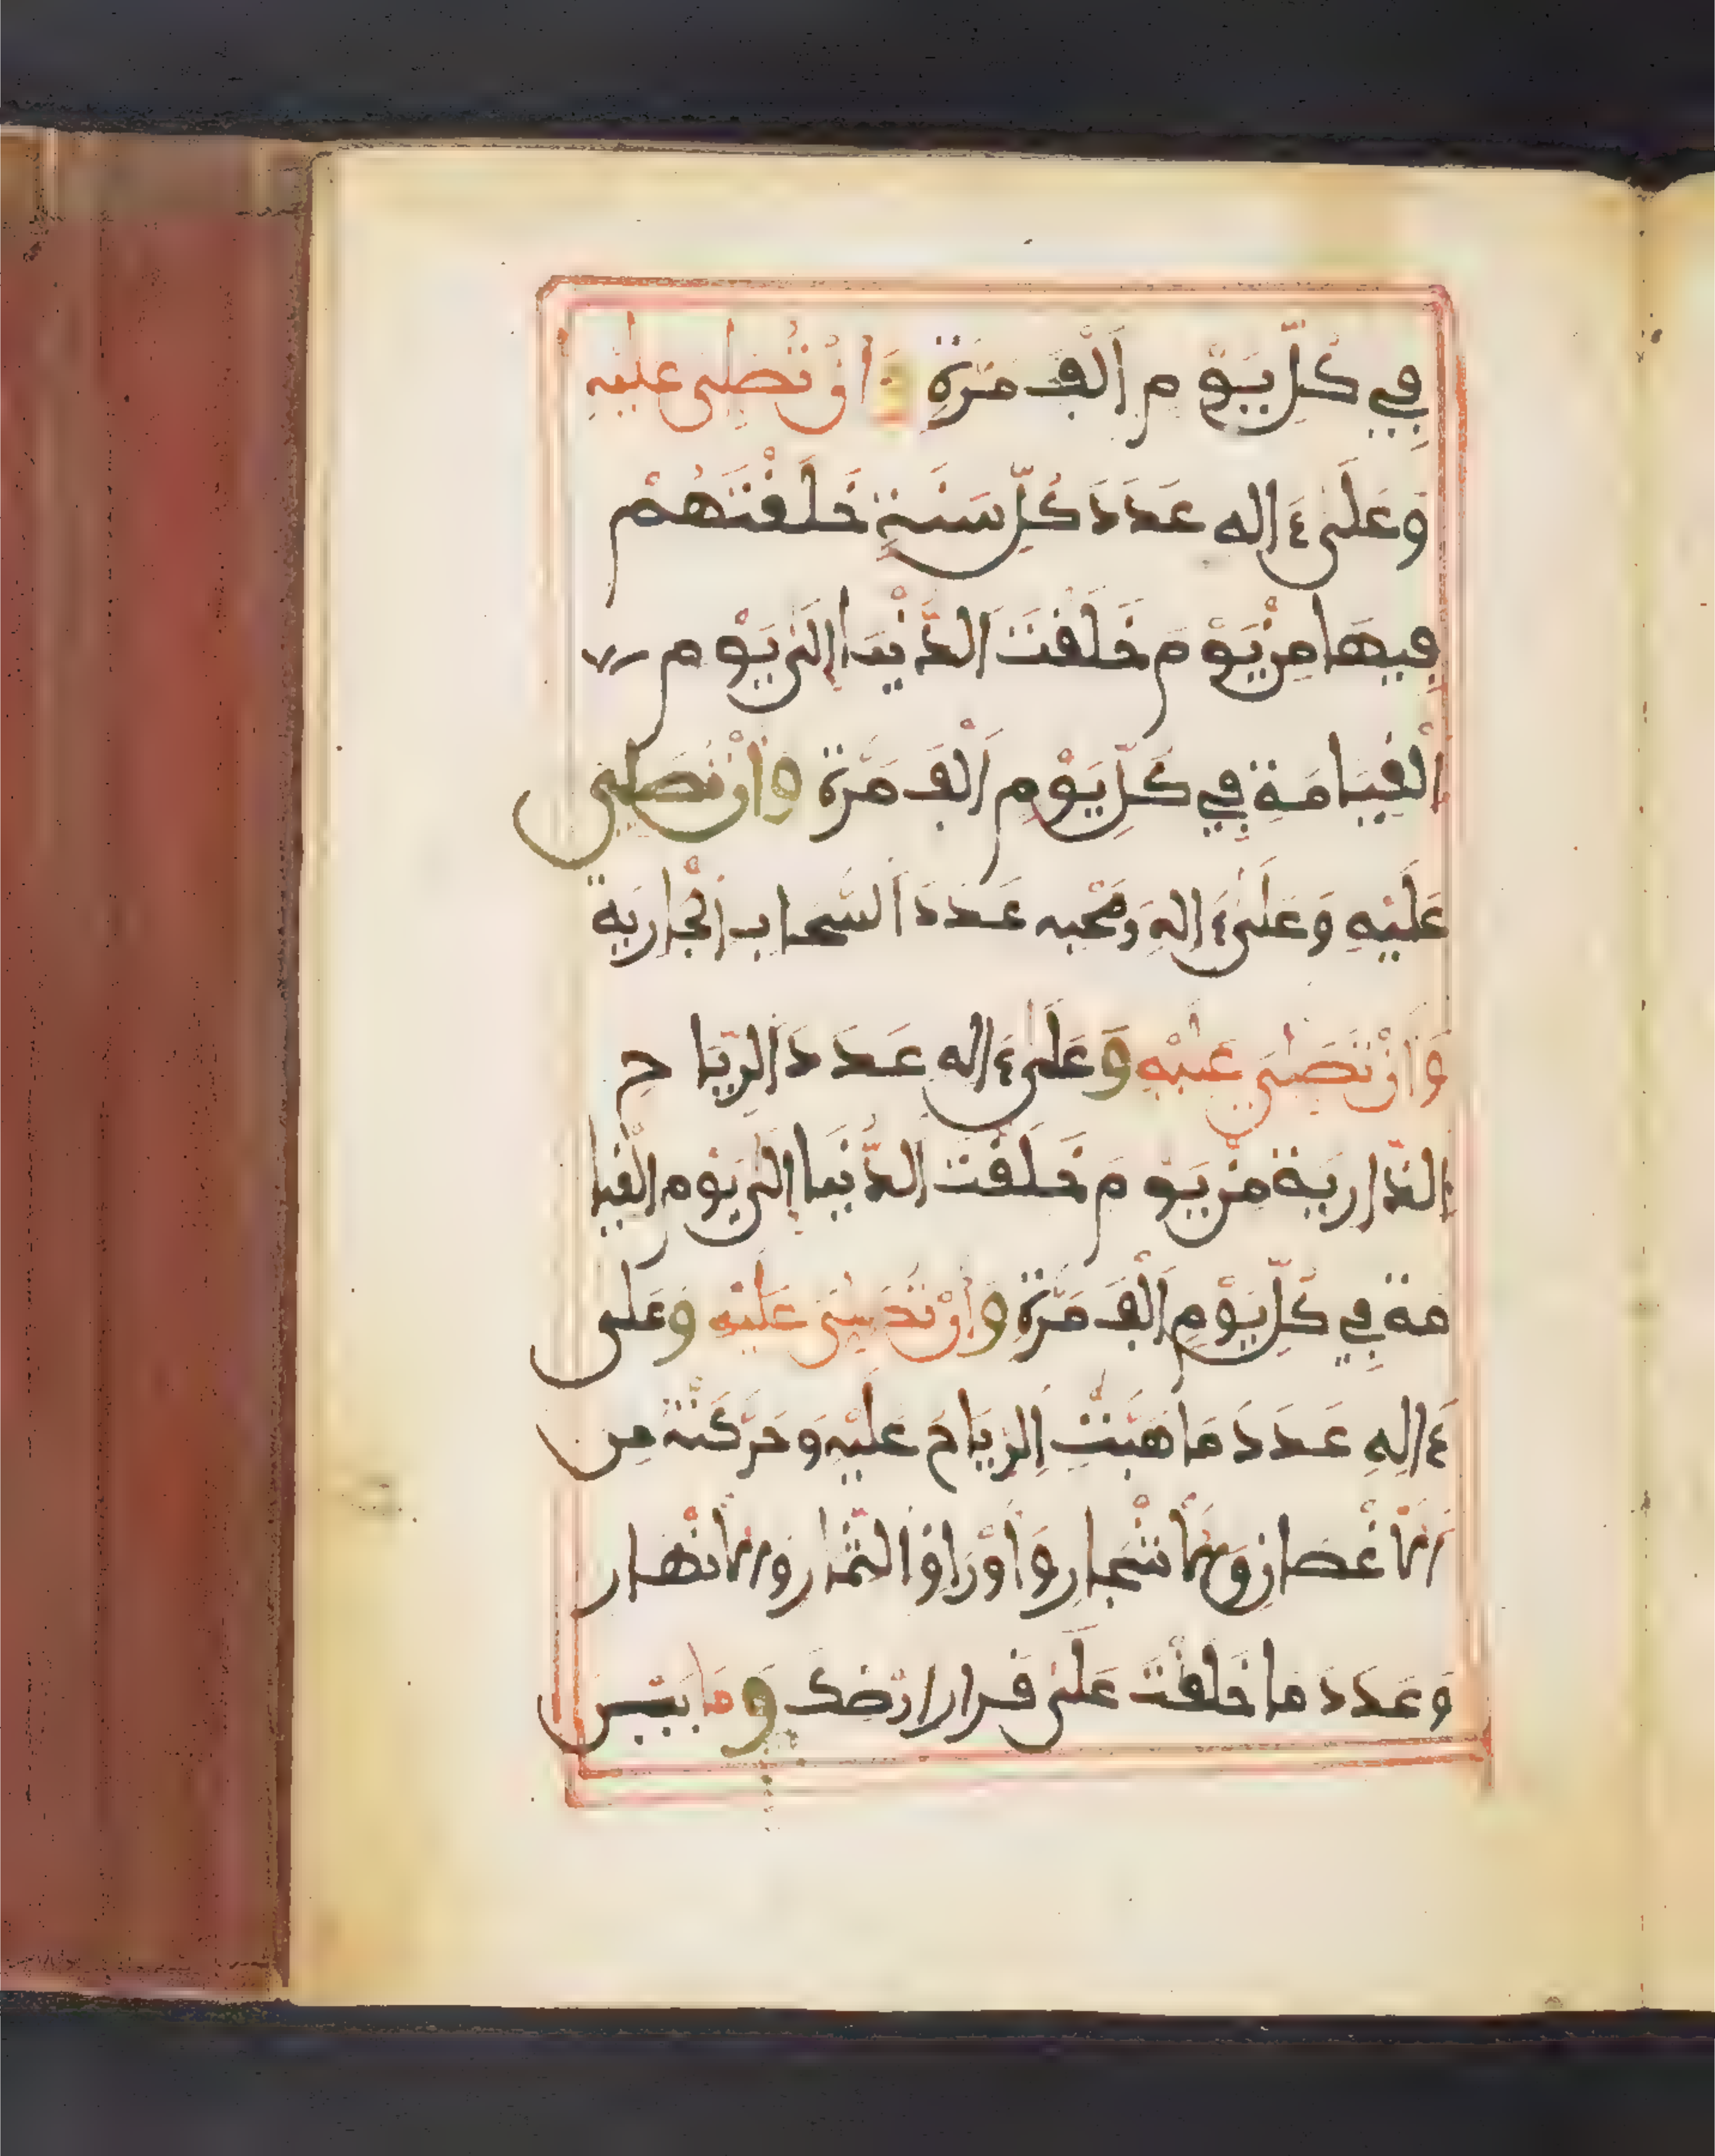 فِي كُلِّ يَوْمٍ أَلْفَ مَرَّةٍ وَأَنْ تُصَلِّيَ عَلَيْهِ
وَعَلَى ءَالِهِ عَدَدَ كُلِّ سَنَةٍ خَلَقْتَهُمْ
فِيهَا مِنْ يَوْمَ خَلَقْتَ الدُّنْيَا إِلَى يَوْمِ
الْقِيَامَةِ فِي كُلِّ يَوْمٍ أَلْفَ مَرَّةٍ وَأَنْ تُصَلِّيَ
عَلَيْهِ وَعَلَى ءَالِهِ وَصَحْبِهِ عَدَدَ السَّحَابِ الْجَارِيَةِ
وَأَنْ تُصَلِّيَ عَلَيْهِ وَعَلَى ءَالِهِ عَدَدَ الرِّيَاحِ
الذَّارِيَةِ مِنْ يَوْمَ خَلَقْتَ الدُّنْيَا إِلَى يَوْمِ الْقِيَا
مَةِ فِي كُلِّ يَوْمٍ أَلْفَ مَرَّةٍ وَأَنْ تُصَلِّيَ عَلَيْهِ وَعَلَى
ءَالِهِ عَدَدَ مَا هَبَّتِ الرِّيَاحُ عَلَيْهِ وَحَرَّكَتْهُ مِنَ
الْأَغْصَانِ وَالْأَشْجَارِ وَأَوْرَاقِ الثِّمَارِ وَالْأَنْهَارِ
وَعَدَدَ مَا خَلَقْتَ عَلَى قَرَارِ ارْضِكَ وَمَا بَيْنَ